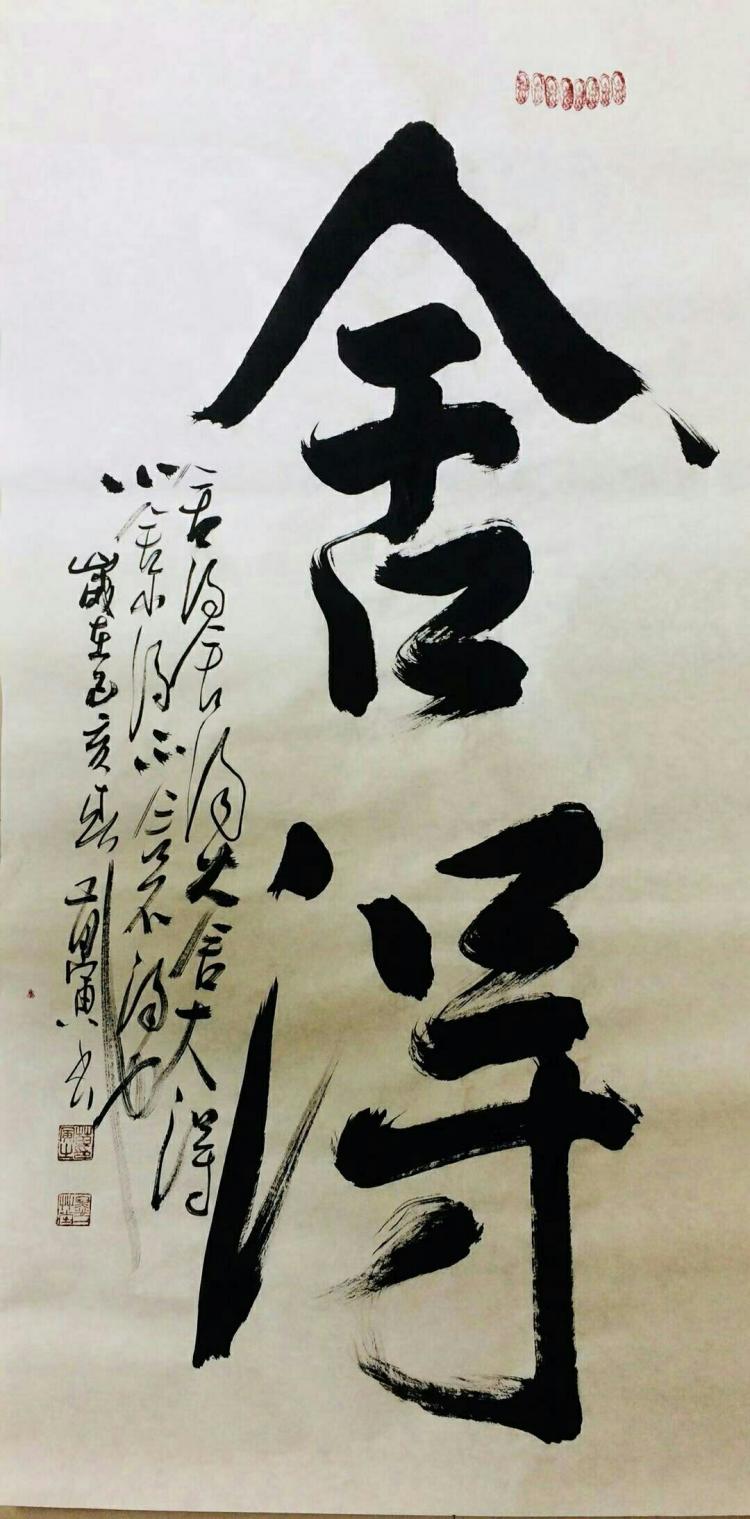 舍得
舍得舍得大舍大得
小舍小得不舍不得也
歲在己亥春
寅书